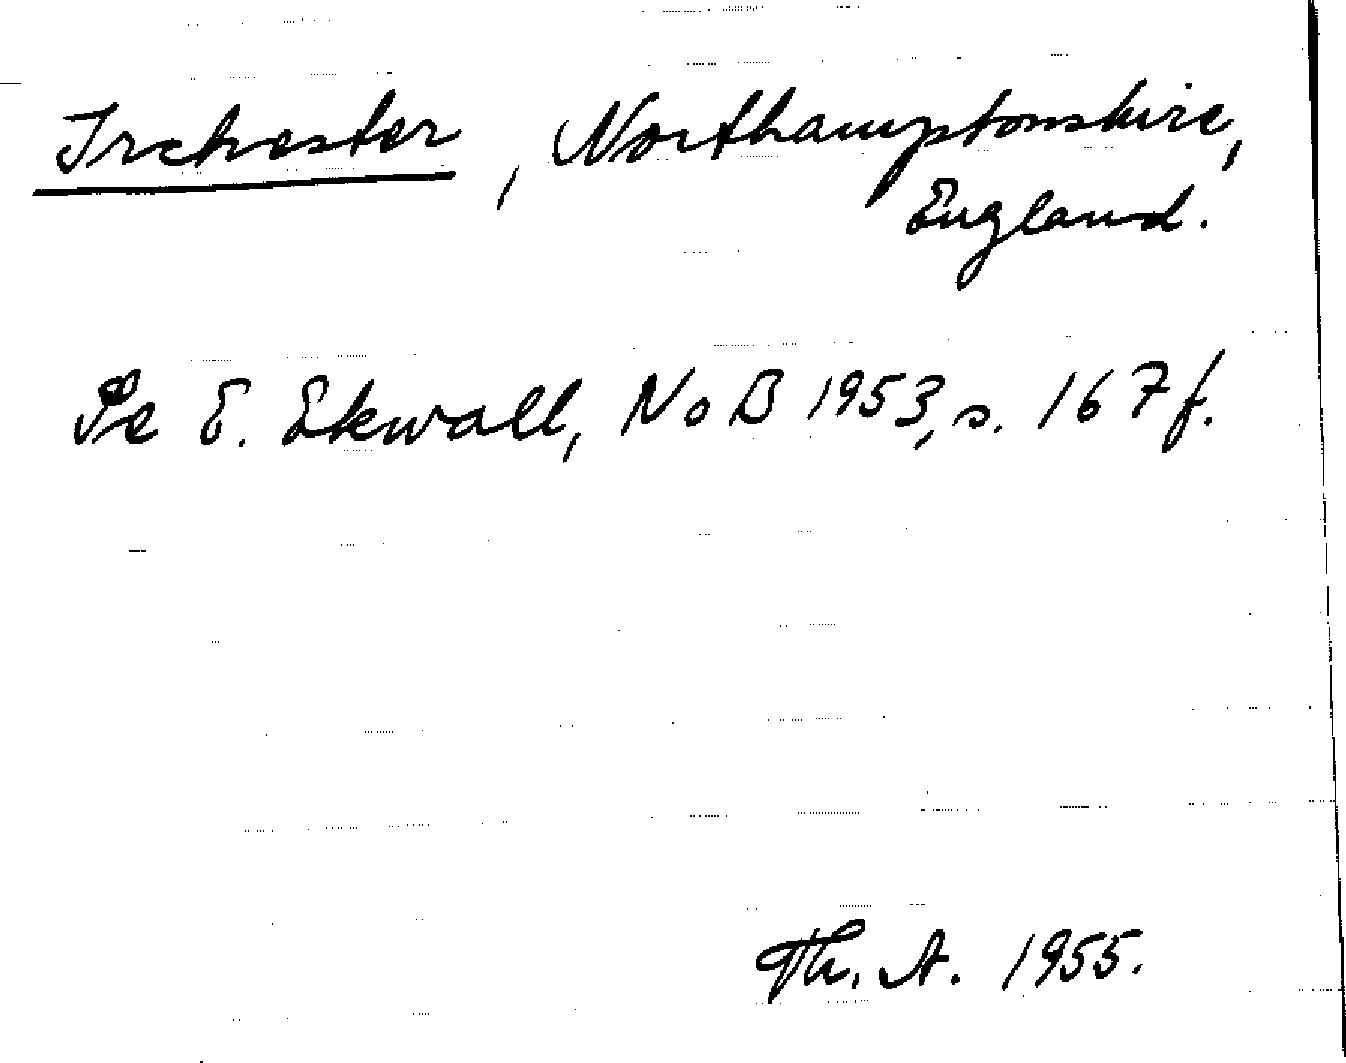 Irchester, Northamptonshire,
England.
Se E. Ekwall, NoB 1953, s. 167 f.
Th. A. 1955.